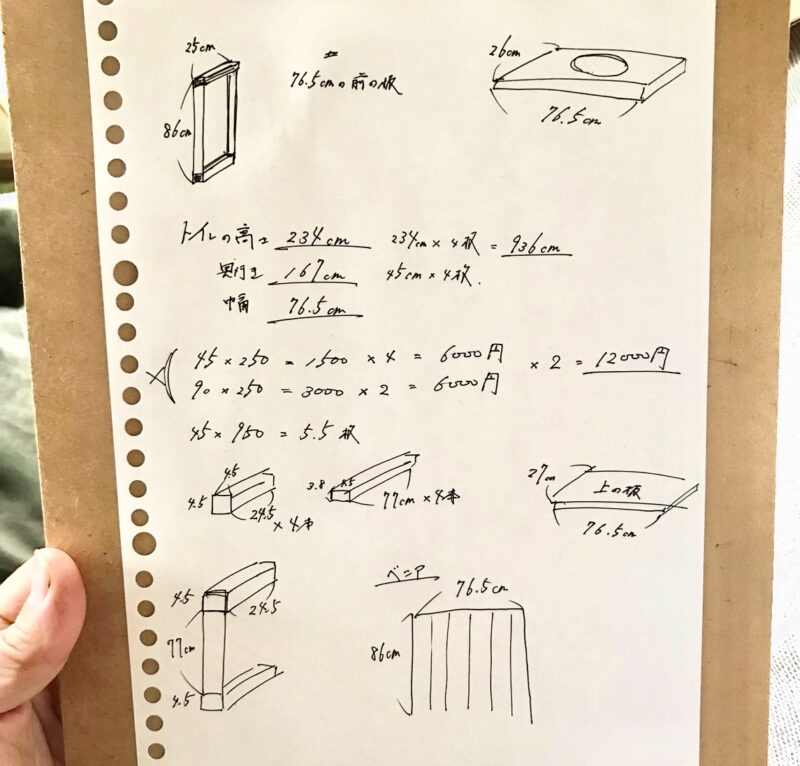 25cm
76.5cmの前の板
26cm
86cm
76.5cm
トイレの高さ 234cm 234cm×4枚=936cm
奥行き 167cm 45cm×4枚.
巾幅 76.5cm
45×250=1500×4=6000円
×2=12000円
90×250=3000×2=6000円
45×950=5.5枚
4.5
4.5
24.5
×4本
3.8
4.5
77cm×4本
27cm
上の板
76.5cm
4.5
24.5
77cm
4.5
ベニア
76.5cm
86cm